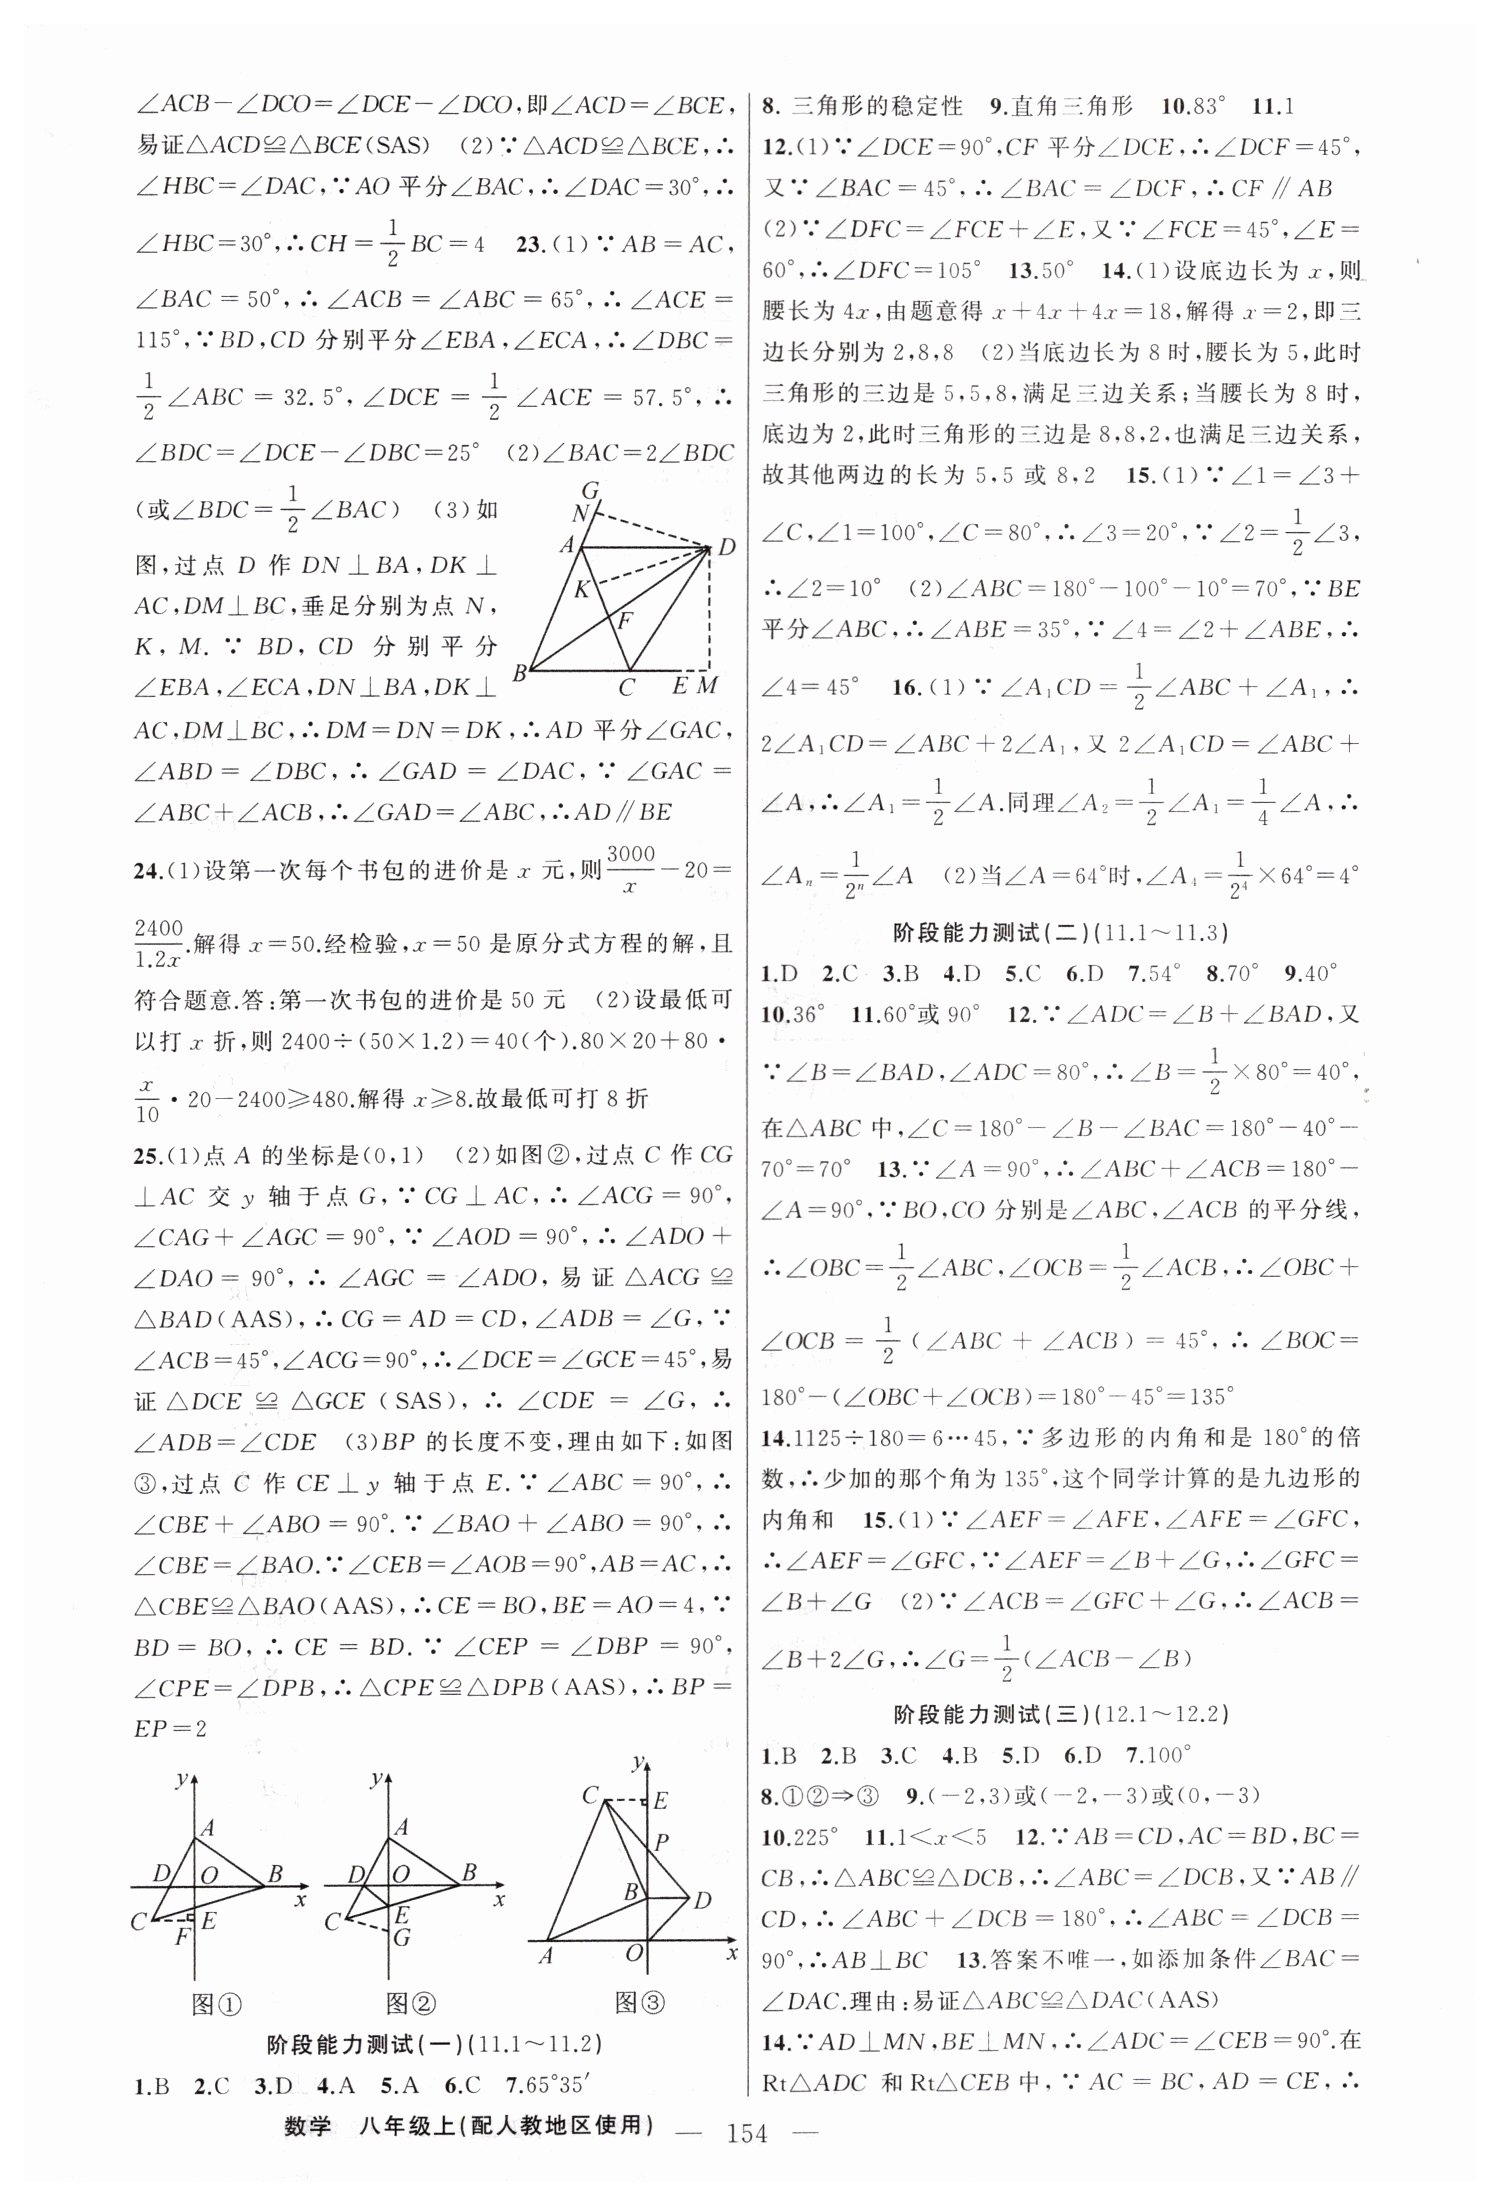 ∠ACB－∠DCO＝∠DCE－∠DCO,即∠ACD＝∠BCE,
易证△ACD≌△BCE(SAS) (2)∵△ACD≌△BCE,∴
∠HBC＝∠DAC,∵AO 平分∠BAC,∴∠DAC＝30°,∴
∠HBC＝30°,∴CH＝1/2 BC＝4 23.(1)∵AB＝AC,
∠BAC＝50°,∴∠ACB＝∠ABC＝65°,∴∠ACE＝
115°,∵BD,CD 分别平分∠EBA,∠ECA,∴∠DBC＝
1/2∠ABC＝32.5°,∠DCE＝1/2∠ACE＝57.5°,∴
∠BDC＝∠DCE－∠DBC＝25° (2)∠BAC＝2∠BDC
(或∠BDC＝1/2∠BAC) (3)如
图,过点 D 作 DN⊥BA,DK⊥
AC,DM⊥BC,垂足分别为点 N,
K,M.∵BD,CD 分别平分
∠EBA,∠ECA,DN⊥BA,DK⊥
AC,DM⊥BC,∴DM＝DN＝DK,∴AD 平分∠GAC,
∠ABD＝∠DBC,∴∠GAD＝∠DAC,∵∠GAC＝
∠ABC＋∠ACB,∴∠GAD＝∠ABC,∴AD∥BE
G
N
A
D
K
F
B
C
E M
24.(1)设第一次每个书包的进价是 x 元,则3000/x－20＝
2400/1.2x.解得 x＝50.经检验,x＝50 是原分式方程的解,且
符合题意.答:第一次书包的进价是 50 元 (2)设最低可
以打 x 折,则 2400÷(50×1.2)＝40(个).80×20＋80·
x/10·20－2400≥480.解得 x≥8.故最低可打 8 折
25.(1)点 A 的坐标是(0,1) (2)如图②,过点 C 作 CG
⊥AC 交 y 轴于点 G,∵CG⊥AC,∴∠ACG＝90°,
∠CAG＋∠AGC＝90°,∵∠AOD＝90°,∴∠ADO＋
∠DAO＝90°,∴∠AGC＝∠ADO,易证△ACG≌
△BAD(AAS),∴CG＝AD＝CD,∠ADB＝∠G,∵
∠ACB＝45°,∠ACG＝90°,∴∠DCE＝∠GCE＝45°,易
证△DCE≌△GCE(SAS),∴∠CDE＝∠G,∴
∠ADB＝∠CDE (3)BP 的长度不变,理由如下:如图
③,过点 C 作 CE⊥y 轴于点 E.∵∠ABC＝90°,∴
∠CBE＋∠ABO＝90°.∵∠BAO＋∠ABO＝90°,∴
∠CBE＝∠BAO.∵∠CEB＝∠AOB＝90°,AB＝AC,∴
△CBE≌△BAO(AAS),∴CE＝BO,BE＝AO＝4,∵
BD＝BO,∴CE＝BD.∵∠CEP＝∠DBP＝90°,
∠CPE＝∠DPB,∴△CPE≌△DPB(AAS),∴BP＝
EP＝2
y
A
D O B
x
C E
F
图①
y
A
D O B
x
C E
G
图②
y
C E
P
B D
A O x
图③
阶段能力测试(一)(11.1～11.2)
1.B 2.C 3.D 4.A 5.A 6.C 7.65°35′
8. 三角形的稳定性 9.直角三角形 10.83° 11.1
12.(1)∵∠DCE＝90°,CF 平分∠DCE,∴∠DCF＝45°,
又∵∠BAC＝45°,∴∠BAC＝∠DCF,∴CF∥AB
(2)∵∠DFC＝∠FCE＋∠E,又∵∠FCE＝45°,∠E＝
60°,∴∠DFC＝105° 13.50° 14.(1)设底边长为 x,则
腰长为 4x,由题意得 x＋4x＋4x＝18,解得 x＝2,即三
边长分别为 2,8,8 (2)当底边长为 8 时,腰长为 5,此时
三角形的三边是 5,5,8,满足三边关系;当腰长为 8 时,
底边为 2,此时三角形的三边是 8,8,2,也满足三边关系,
故其他两边的长为 5,5 或 8,2 15.(1)∵∠1＝∠3＋
∠C,∠1＝100°,∠C＝80°,∴∠3＝20°,∵∠2＝1/2∠3,
∴∠2＝10° (2)∠ABC＝180°－100°－10°＝70°,∵BE
平分∠ABC,∴∠ABE＝35°,∵∠4＝∠2＋∠ABE,∴
∠4＝45° 16.(1)∵∠A₁CD＝1/2∠ABC＋∠A₁,∴
2∠A₁CD＝∠ABC＋2∠A₁,又 2∠A₁CD＝∠ABC＋
∠A,∴∠A₁＝1/2∠A.同理∠A₂＝1/2∠A₁＝1/4∠A,∴
∠Aₙ＝1/2ⁿ∠A (2)当∠A＝64°时,∠A₄＝1/2⁴×64°＝4°
阶段能力测试(二)(11.1～11.3)
1.D 2.C 3.B 4.D 5.C 6.D 7.54° 8.70° 9.40°
10.36° 11.60°或 90° 12.∵∠ADC＝∠B＋∠BAD,又
∵∠B＝∠BAD,∠ADC＝80°,∴∠B＝1/2×80°＝40°,
在△ABC 中,∠C＝180°－∠B－∠BAC＝180°－40°－
70°＝70° 13.∵∠A＝90°,∴∠ABC＋∠ACB＝180°－
∠A＝90°,∵BO,CO 分别是∠ABC,∠ACB 的平分线,
∴∠OBC＝1/2∠ABC,∠OCB＝1/2∠ACB,∴∠OBC＋
∠OCB＝1/2(∠ABC＋∠ACB)＝45°,∴∠BOC＝
180°－(∠OBC＋∠OCB)＝180°－45°＝135°
14.1125÷180＝6…45,∵多边形的内角和是 180°的倍
数,∴少加的那个角为 135°,这个同学计算的是九边形的
内角和 15.(1)∵∠AEF＝∠AFE,∠AFE＝∠GFC,
∴∠AEF＝∠GFC,∵∠AEF＝∠B＋∠G,∴∠GFC＝
∠B＋∠G (2)∵∠ACB＝∠GFC＋∠G,∴∠ACB＝
∠B＋2∠G,∴∠G＝1/2(∠ACB－∠B)
阶段能力测试(三)(12.1～12.2)
1.B 2.B 3.C 4.B 5.D 6.D 7.100°
8.①②⇒③ 9.(－2,3)或(－2,－3)或(0,－3)
10.225° 11.1＜x＜5 12.∵AB＝CD,AC＝BD,BC＝
CB,∴△ABC≌△DCB,∴∠ABC＝∠DCB,又∵AB∥
CD,∴∠ABC＋∠DCB＝180°,∴∠ABC＝∠DCB＝
90°,∴AB⊥BC 13.答案不唯一,如添加条件∠BAC＝
∠DAC.理由:易证△ABC≌△DAC(AAS)
14.∵AD⊥MN,BE⊥MN,∴∠ADC＝∠CEB＝90°.在
Rt△ADC 和Rt△CEB 中,∵AC＝BC,AD＝CE,∴
数学 八年级上(配人教地区使用) — 154 —